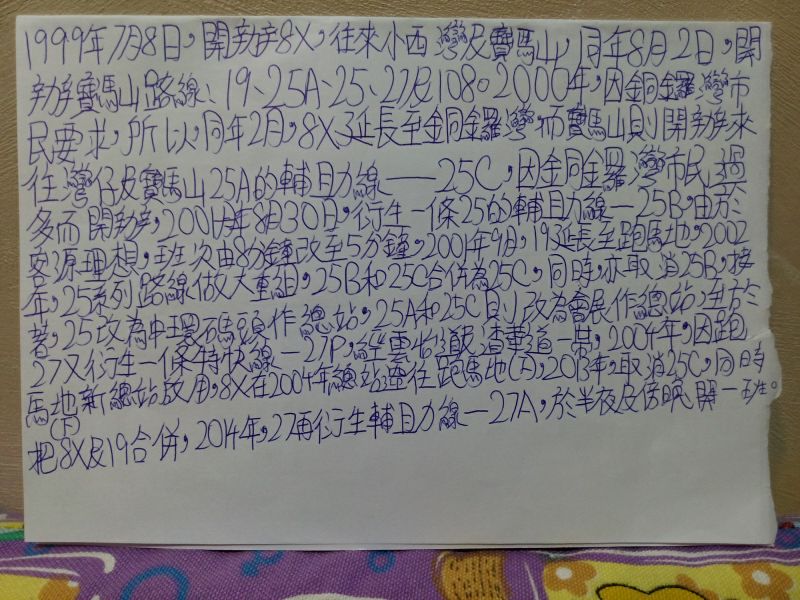 1999年7月8日，開辦8X，往來小西灣及寶馬山，同年8月2日，開
辦寶馬山路線、19、25A、25、27及108。2000年，因銅鑼灣市
民要求，所以，同年2月，8X延長至銅鑼灣，而寶馬山則開辦來
往灣仔及寶馬山25A的輔助線——25C，因銅鑼灣市民過
多而開辦，2001年8月30日，衍生一條25的輔助線—25B，由於
客源理想，班次由8分鐘改至5分鐘，2001年9月，19延長至跑馬地，2002
年，25系列路線做大重組，25B和25C合併為25C，同時，亦取消25B，接
著，25改為中環碼頭作總站，25A和25C則改為會展作總站，至於
27又衍生一條特快線—27P，經雲怡道、渣華道一帶，2004年，因跑
馬地新總站啟用，8X在2004年總站遷往跑馬地(下)，2013年，取消25C，同時
(下)
把8X及19合併，2014年，27再衍生輔助線—27A，於半夜及傍晚開一班。